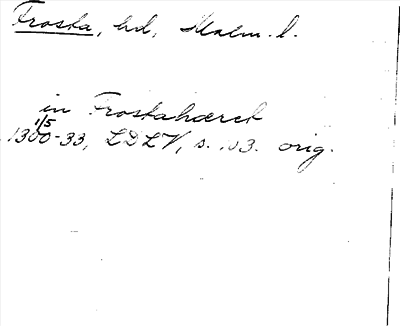 Frosta, hd, Malm. l.
in Frostahæreth
1/5
1300-33, LDLV, s. 103. orig.